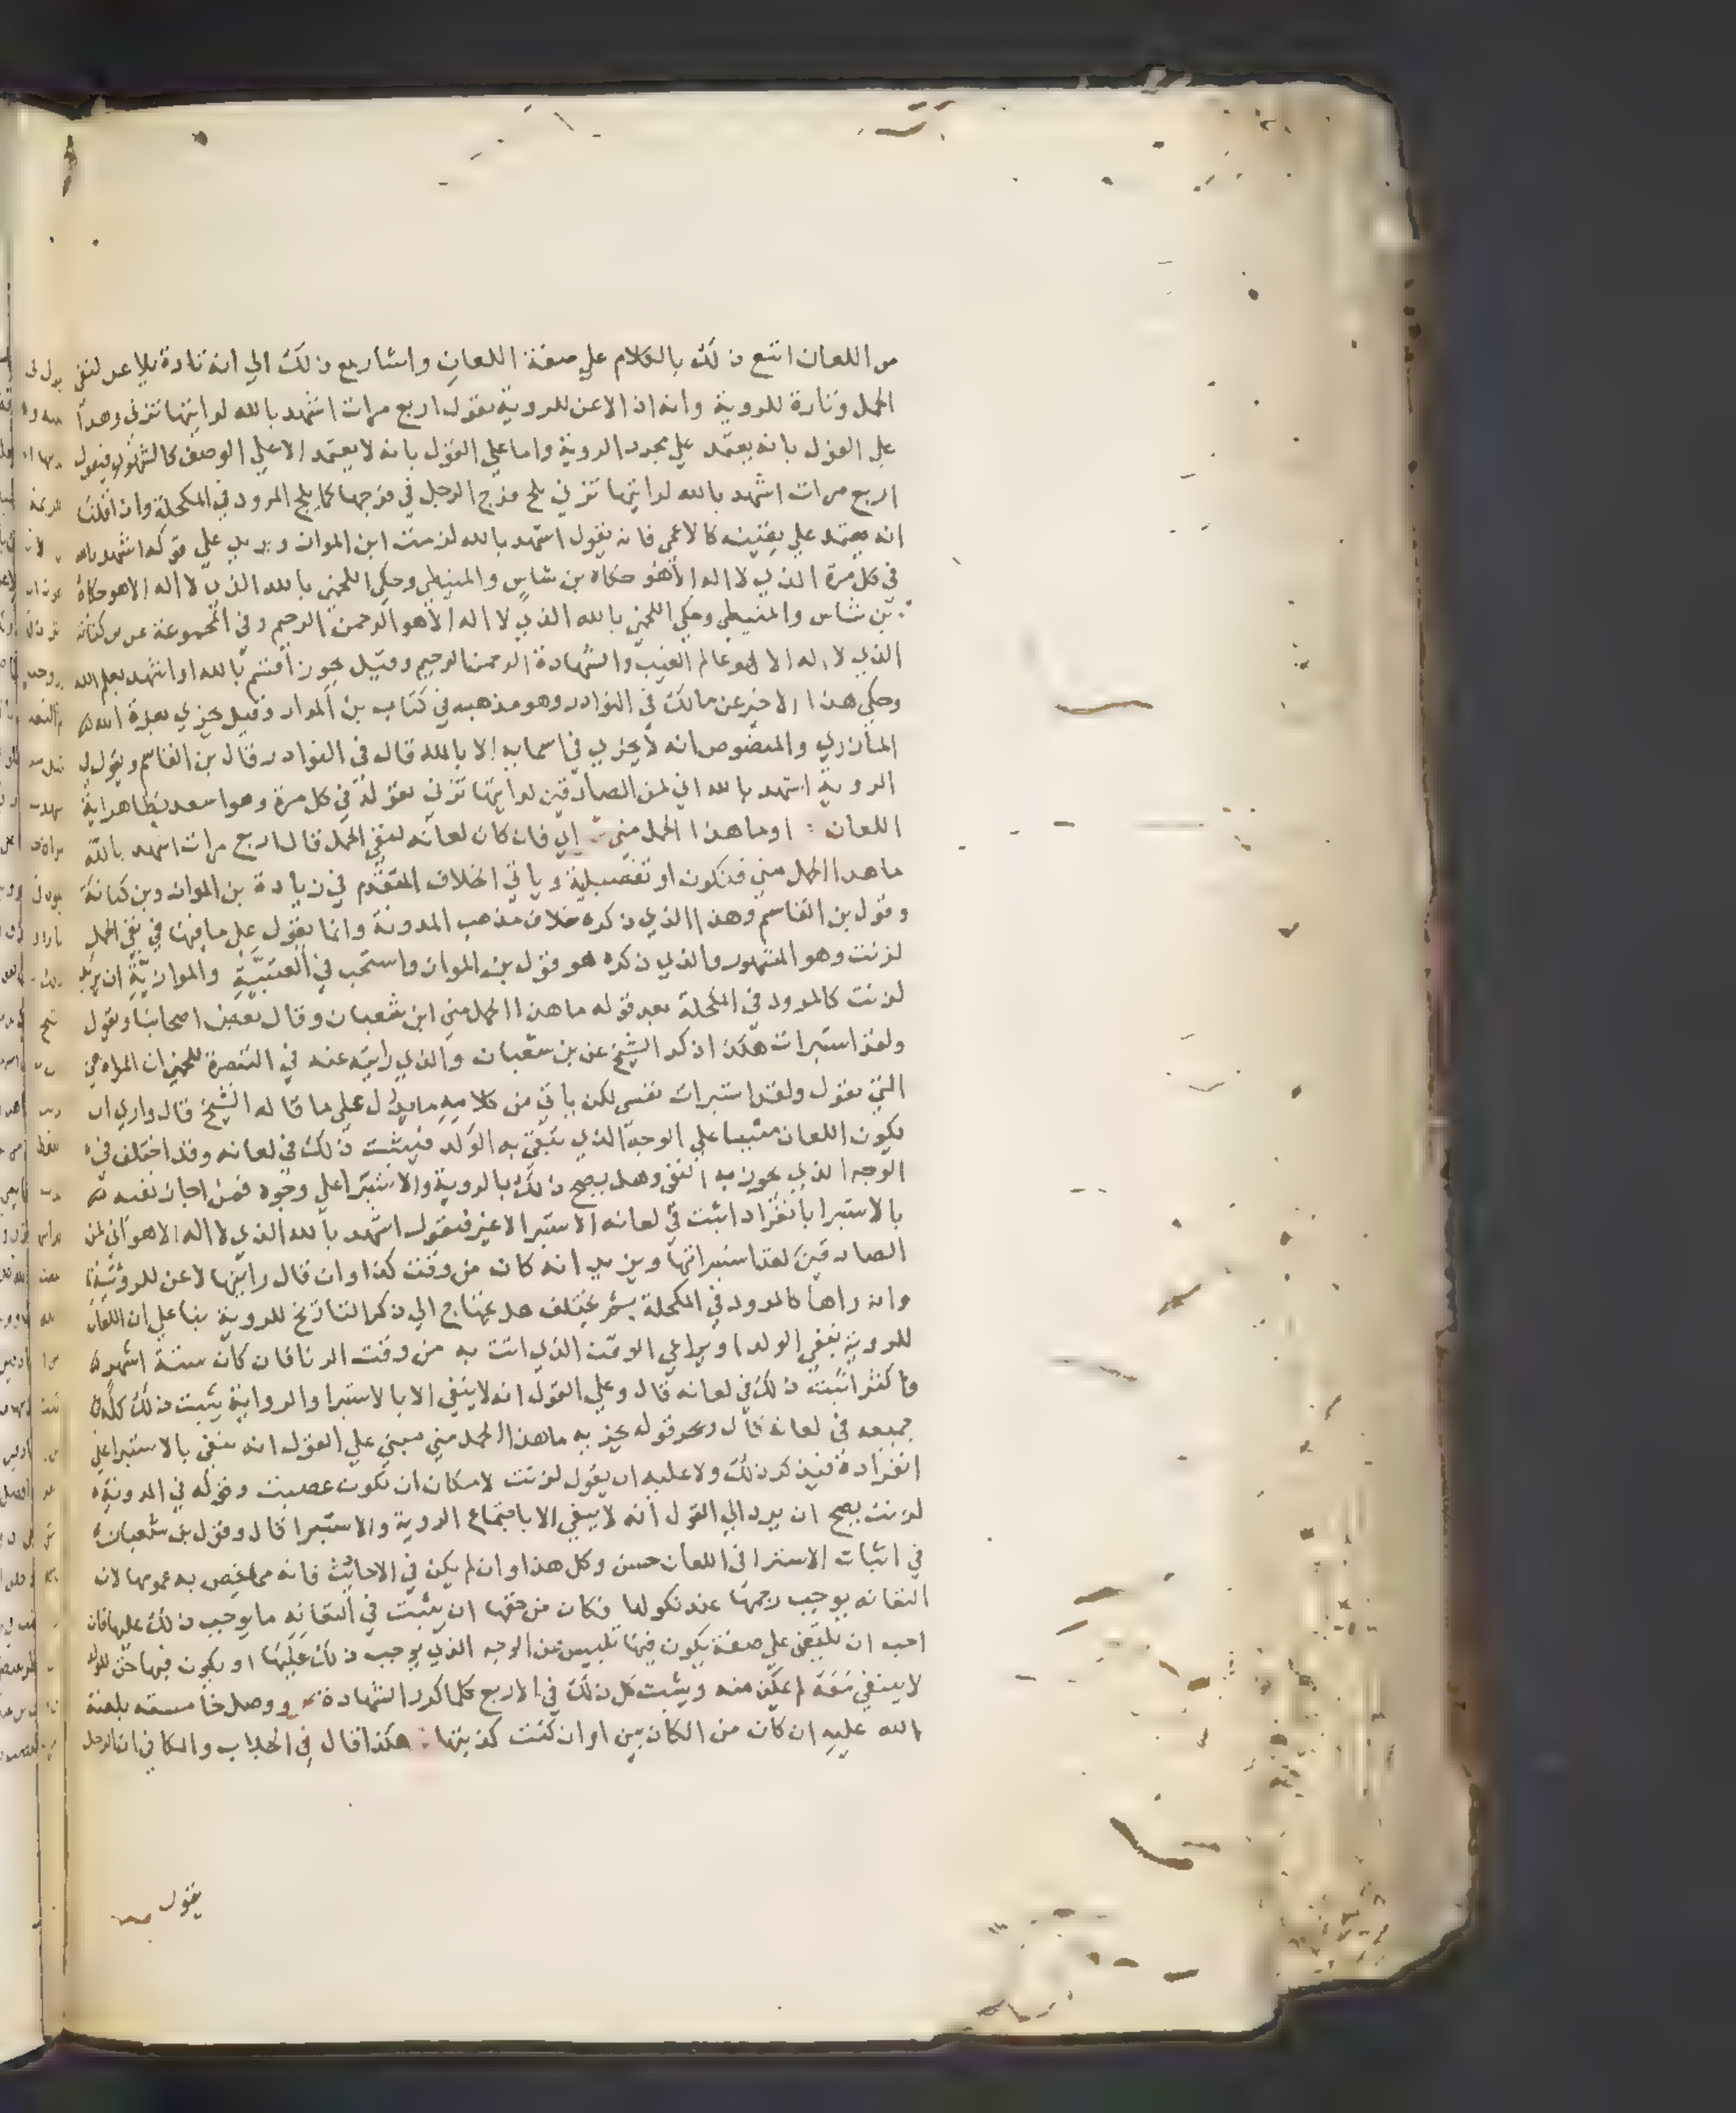 من اللعان اتبع ذلك بالكلام علي صفة اللعان واشار مع ذلك الي انه تارة يلاعن لنفي
الحمل وتارة للروية وانه اذا لاعن للروية يقول اربع مرات اشهد بالله لرايتها تزني وهذا
علي القول بانه يعتمد علي مجرد الروية واما علي القول بانه لا يعتمد الا علي الوصف كالشهود فيقول
اربع مرات اشهد بالله لرايتها تزني يلج فرج الرجل في فرجها كما يلج المرود في المكحلة وان قلنا
انه يعتمد علي يقينه كالاعمي فانه يقول اشهد بالله لزنت ابن المواز ويزيد علي قوله اشهد بالله
في كل مرة الذي لا اله الا هو حكاه بن شاس والمتيطي وحكي اللخمي بالله الذي لا اله الا هو حكاه
بن شاس والمتيطي وحكي اللخمي بالله الذي لا اله الا هو الرحمن الرحيم وفي المجموعة عن بن كنانة
الذي لا اله الا هو عالم الغيب والشهادة الرحمن الرحيم وقيل يجوز اقسم بالله او اشهد بعلم الله
وحكي هذا الاخير عن مالك في النوادر وهو مذهبه في كتاب بن المواز وقيل يجزي بعزة الله
المازري والمنصوص انه لا يجزي في اسمايه الا بالله قال في النوادر قال بن القاسم ويقول في
الروية اشهد بالله اني لمن الصادقين لرايتها تزني يقوله في كل مرة وهو اسعد بظاهر اية
اللعان : او ما هذا الحمل مني : اي فان كان لعانه لنفي الحمل قال اربع مرات اشهد بالله
ما هذا الحمل مني فتكون او تفصيلية وياتي الخلاف المتقدم في زيادة بن المواز وبن كنانة
وقول بن القاسم وهذا الذي ذكره خلاف مذهب المدونة وانما يقول علي ما فيها في نفي الحمل
لزنت وهو المشهور والذي ذكره هو قول بن المواز واستحب في العتبية والموازية ان يزيد
لزنت كالمرود في المكحلة بعد قوله ما هذا الحمل مني ابن شعبان وقال بعض اصحابنا ويقول
ولقد استبرات هكذا ذكر الشيخ عن بن شعبان والذي رايته عنه في التبصرة للخمي ان المراة هي
التي تقول ولقد استبرات نفسي لكن ياتي من كلامه ما يدل علي ما قاله الشيخ قال واري ان
يكون اللعان مثبتا علي الوجه الذي ينتفي به الولد فيثبت ذلك في لعانه وقد اختلف في
الوجه الذي يجوز به النفي وهل يصح ذلك بالروية والاستبرا علي وجوه فمن اجاز نفيه
بالاستبرا بانفراد اثبت في لعانه الاستبرا لا غير فيقول اشهد بالله الذي لا اله الا هو اني لمن
الصادقين لقد استبراتها ويزيد انه كان من وقت كذا وان قال رايتها لاعن للروية
وانه راها كالمرود في المكحلة ثم يختلف هل يحتاج الي ذكر التاريخ للروية بنا علي ان اللعان
للروية ينفي الولد او يراعي الوقت الذي اتت به من وقت الزنا فان كان ستة اشهر
فاكثر اثبت ذلك في لعانه قال وعلي القول انه لا ينتفي الا بالاستبرا والرواية يثبت ذلك كله
جميعه في لعانه قال ومحمد قوله يجزيه ما هذا الحمل مني مبني علي القول انه ينفي بالاستبرا علي
انفراده فيذكر ذلك ولا عليه ان يقول لزنت لامكان ان تكون غصبت وقوله في المدونة
لزنت يصح ان يرد الي القول انه لا ينفي الا باجتماع الروية والاستبرا قال وقول بن شعبان
في اثبات الاستبرا في اللعان حسن وكل هذا وان لم يكن في الاحاديث فانه مما يخص به عمومها لان
التعانه يوجب رجمها عند نكولها فكان من حقها ان يثبت في التعانه ما يوجب ذلك عليها فان
احب ان يلتعن علي صفة يكون فيها تلبيس عن الوجه الذي يوجب ذلك عليها او يكون فيها حق للولد
لا ينتفي معه لم يمكن منه ويثبت كل ذلك في الاربع كلما كرر الشهادة : ووصل خامسته بلعنة
الله عليه ان كان من الكاذبين او ان كنت كذبتها : هكذا قال في الجلاب والكافي ان الرجل
يقول